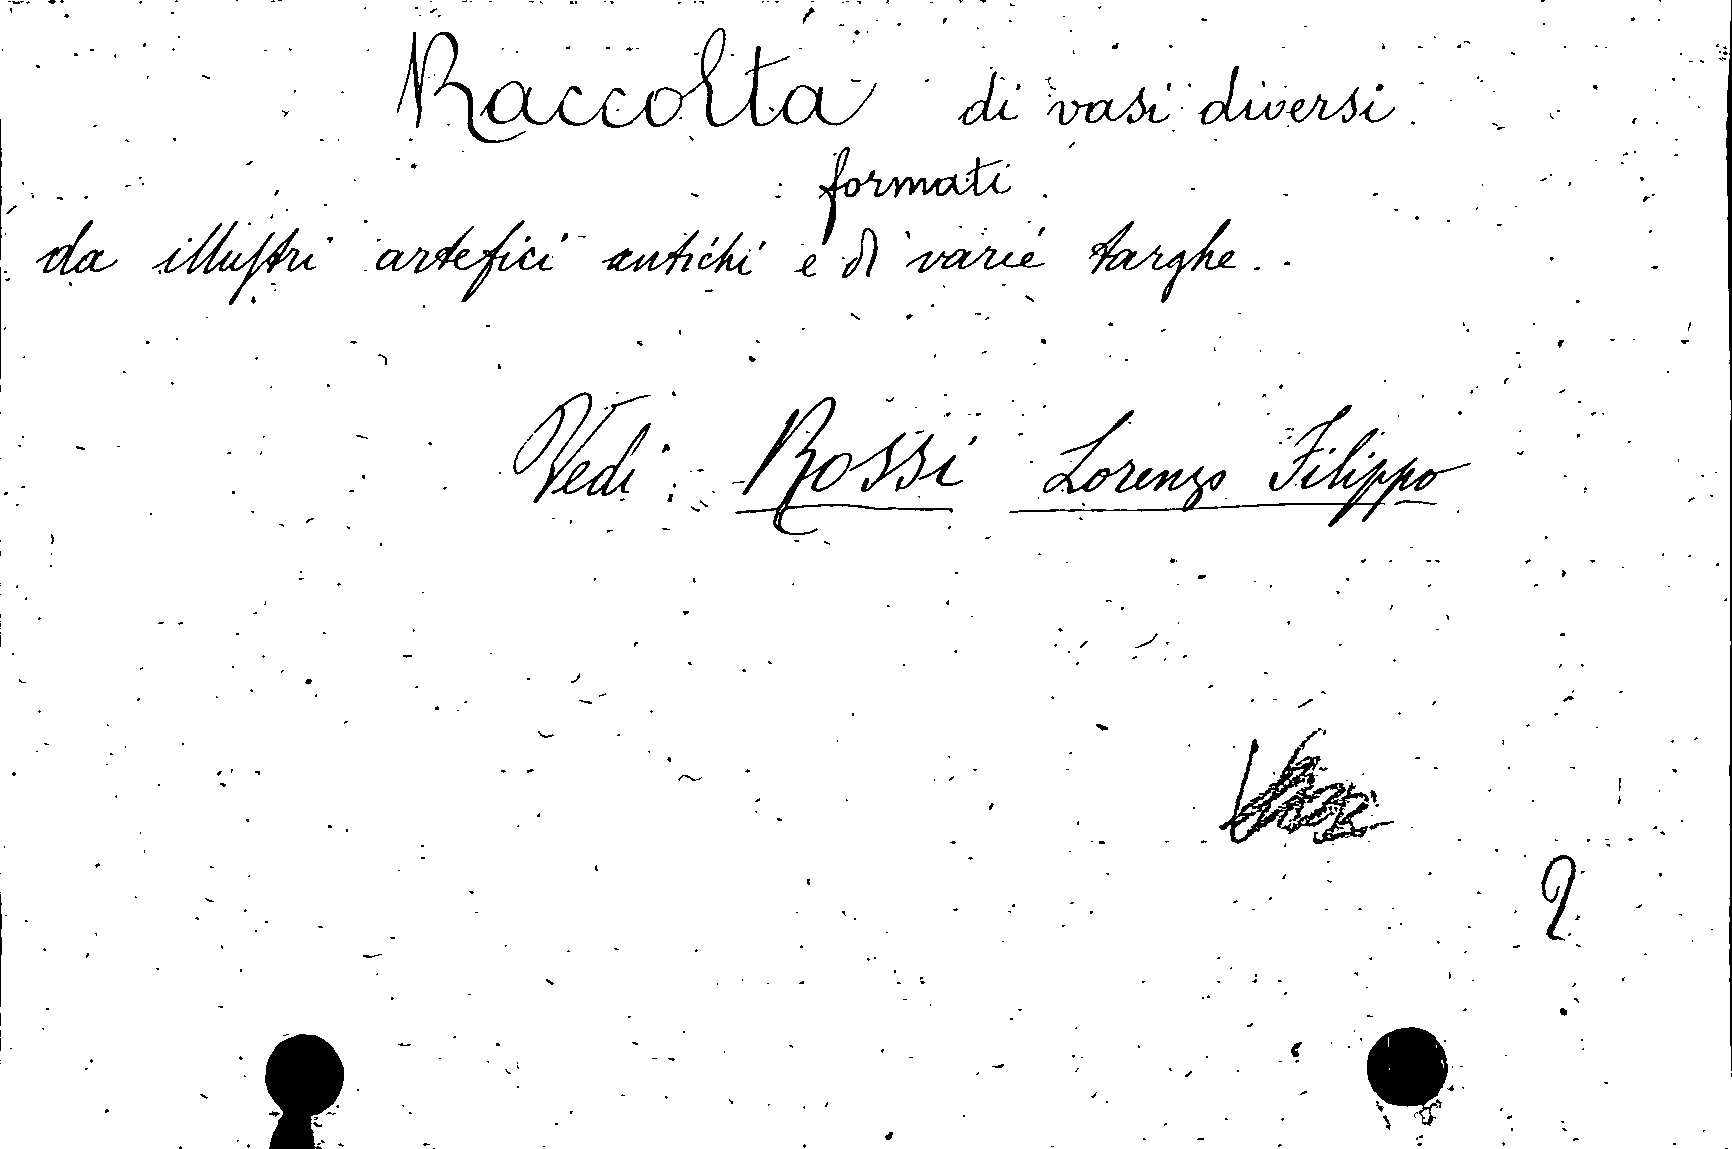 Raccolta di vasi diversi
formati
da illustri artefici antichi e di varie targhe..
Vedi: Rossi Lorenzo Filippo